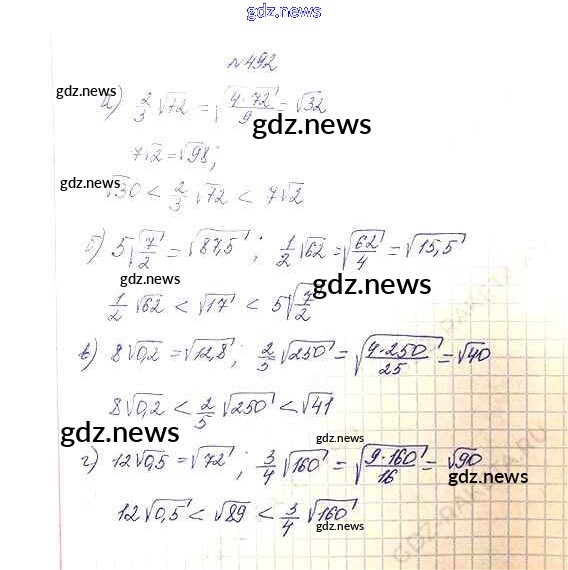 gdz.news
№492
gdz.news
а) 2/3 √72 = √(4·72/9) = √32
gdz.news
7√2 = √98;
gdz.news
√30 < 2/3 √72 < 7√2
б) 5√(7/2) = √87,5; 1/2 √62 = √(62/4) = √15,5
gdz.news
1/2 √62 < √17 < 5√(7/2)
в) 8√0,2 = √12,8; 2/5 √250 = √(4·250/25) = √40
gdz.news
8√0,2 < 2/5 √250 < √41
gdz.news
gdz.news
г) 12√0,5 = √72; 3/4 √160 = √(9·160/16) = √90
gdz.news
12√0,5 < √89 < 3/4 √160
gdz.news
gdz.news
GDZ-RAKETA.RU